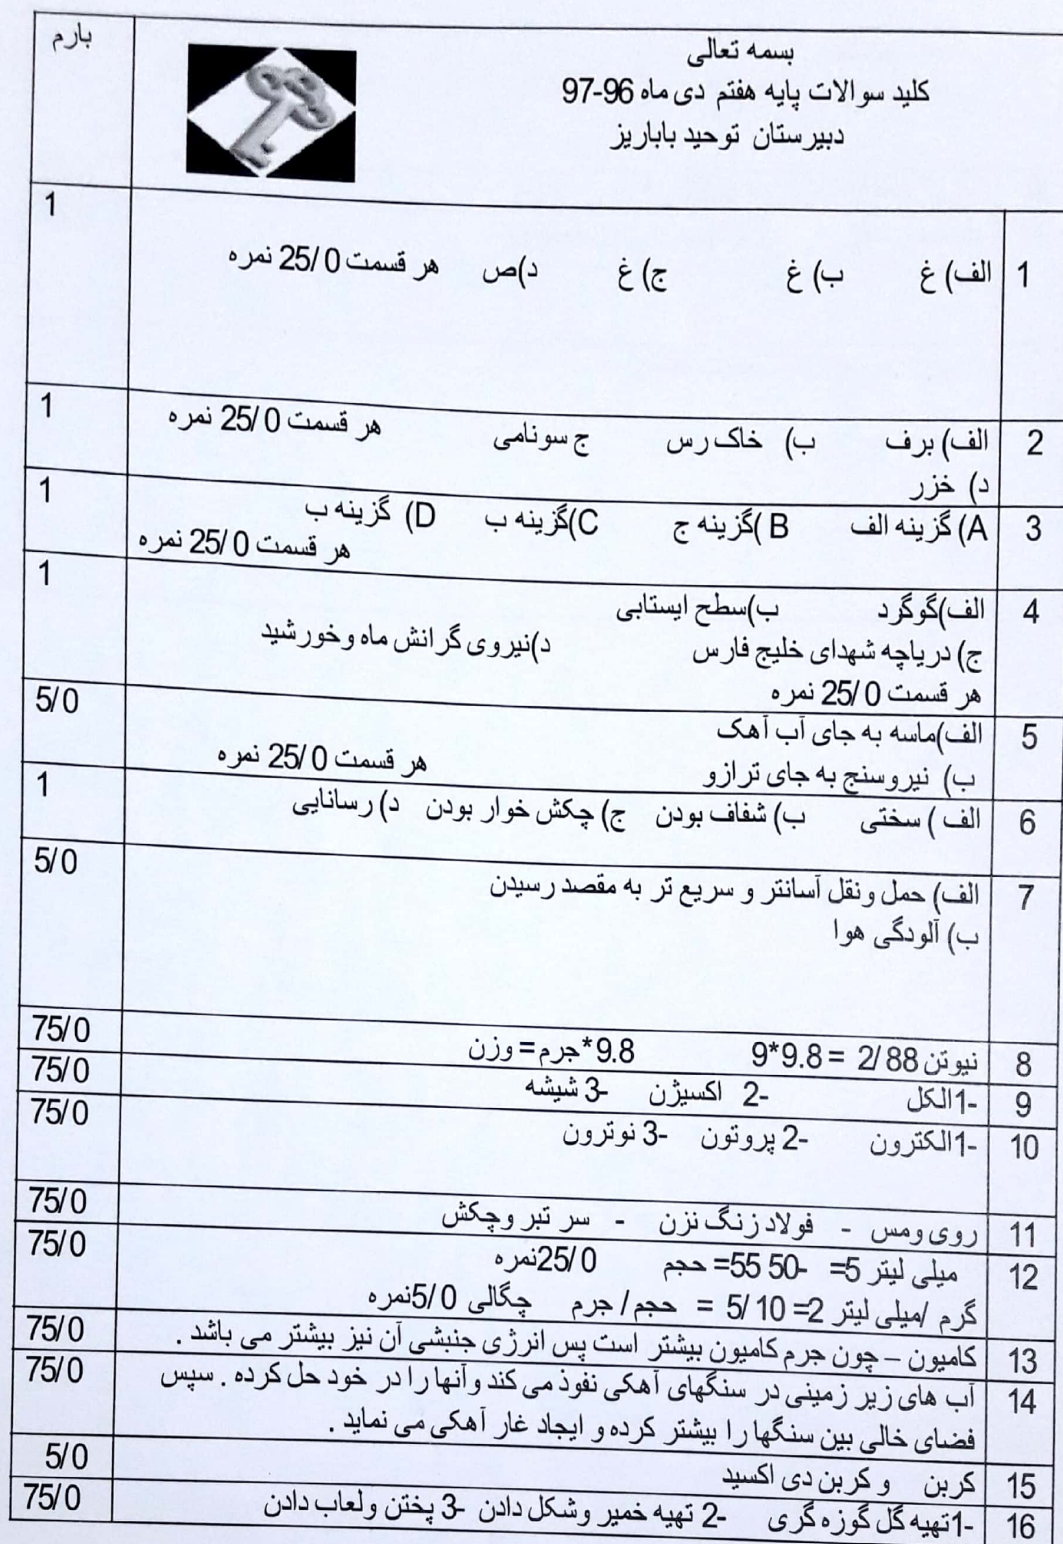 بارم
بسمه تعالی
کلید سوالات پایه هفتم دی ماه 96-97
دبیرستان توحید باباریز
1 الف) غ ب) غ ج) غ د)ص هر قسمت 25/0 نمره 1
2 الف) برف ب) خاک رس ج سونامی هر قسمت 25/0 نمره 1
د) خزر
3 A) گزینه الف B )گزینه ج C)گزینه ب D) گزینه ب 1
هر قسمت 25/0 نمره
4 الف)گوگرد ب)سطح ایستابی 1
ج) دریاچه شهدای خلیج فارس د)نیروی گرانش ماه وخورشید
هر قسمت 25/0 نمره
5 الف)ماسه به جای آب آهک 5/0
ب) نیروسنج به جای ترازو هر قسمت 25/0 نمره
6 الف ) سختی ب) شفاف بودن ج) چکش خوار بودن د) رسانایی 1
7 الف) حمل ونقل آسانتر و سریع تر به مقصد رسیدن 5/0
ب) آلودگی هوا
8 نیوتن 2/88 = 9*9.8 9.8*جرم= وزن 75/0
9 -1الکل -2 اکسیژن -3 شیشه 75/0
10 -1الکترون -2 پروتون -3 نوترون 75/0
11 روی ومس - فولاد زنگ نزن - سر تبر وچکش 75/0
12 میلی لیتر 5= -50 55= حجم 25/0نمره 75/0
گرم /میلی لیتر 2= 10 /5 = حجم / جرم چگالی 5/0نمره
13 کامیون – چون جرم کامیون بیشتر است پس انرژی جنبشی آن نیز بیشتر می باشد . 75/0
14 آب های زیر زمینی در سنگهای آهکی نفوذ می کند وآنها را در خود حل کرده . سپس 75/0
فضای خالی بین سنگها را بیشتر کرده و ایجاد غار آهکی می نماید .
15 کربن و کربن دی اکسید 5/0
16 -1تهیه گل گوزه گری -2 تهیه خمیر وشکل دادن -3 پختن ولعاب دادن 75/0